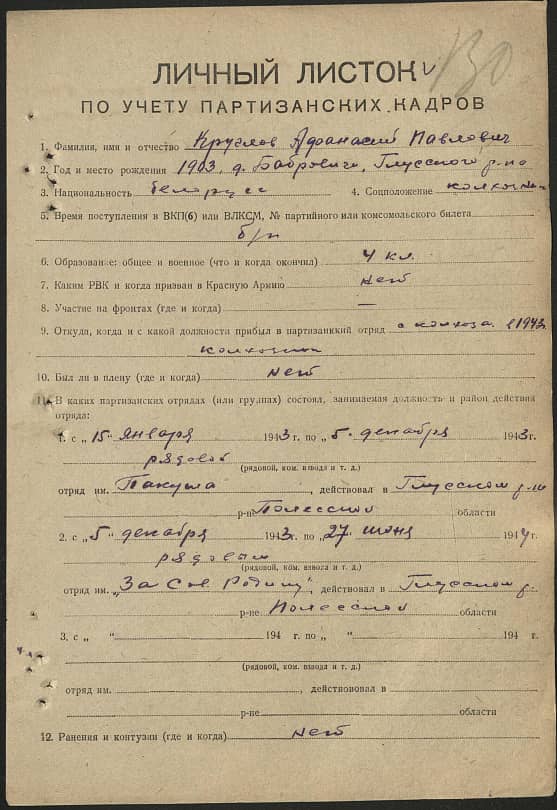 130
ЛИЧНЫЙ ЛИСТОК
ПО УЧЕТУ ПАРТИЗАНСКИХ КАДРОВ
1. Фамилия, имя и отчество Круглов Афанасий Павлович
2. Год и место рождения 1903, д. Бабровичи, Глусского р-на
3. Национальность белорусс 4. Соцположение колхозник
5. Время поступления в ВКП(б) или ВЛКСМ, № партийного или комсомольского билета
б/п
6. Образование: общее и военное (что и когда окончил) 4 кл.
7. Каким РВК и когда призван в Красную Армию нет
8. Участие на фронтах (где и когда) —
9. Откуда, когда и с какой должности прибыл в партизанкий отряд с колхоза в 1943
колхозник
10. Был ли в плену (где и когда) нет
11. В каких партизанских отрядах (или группах) состоял, занимаемая должность и район действия
отряда:
1. с „15„ января 1943 г. по „5„ декабря 1943 г.
рядовой
(рядовой, ком. взвода и т. д.)
отряд им. Пакуша, действовал в Глусском р-не
р-не Полесской области
2. с „5„ декабря 1943 г. по „27„ июня 1944 г.
рядовым
(рядовой, ком. взвода и т. д.)
отряд им. „За Сов. Родину", действовал в Глусском р.
р-не Полесской области
3. с „ “ 194 г. по „ “ 194 г.
(рядовой, ком. взвода и т. д.)
отряд им. , действовал в
р-не области
12. Ранения и контузии (где и когда) нет